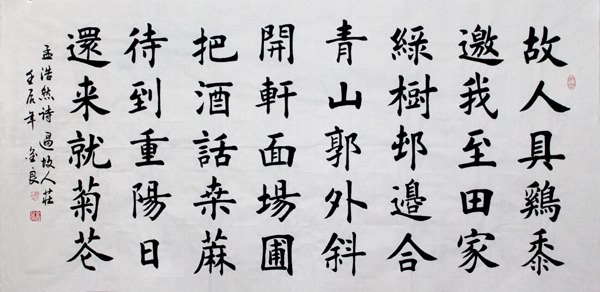 故人具鷄黍
邀我至田家
緑樹邨邊合
青山郭外斜
開軒面場圃
把酒話桒蔴
待到重陽日
還来就菊芲
孟浩然詩過故人莊
壬辰年 金良